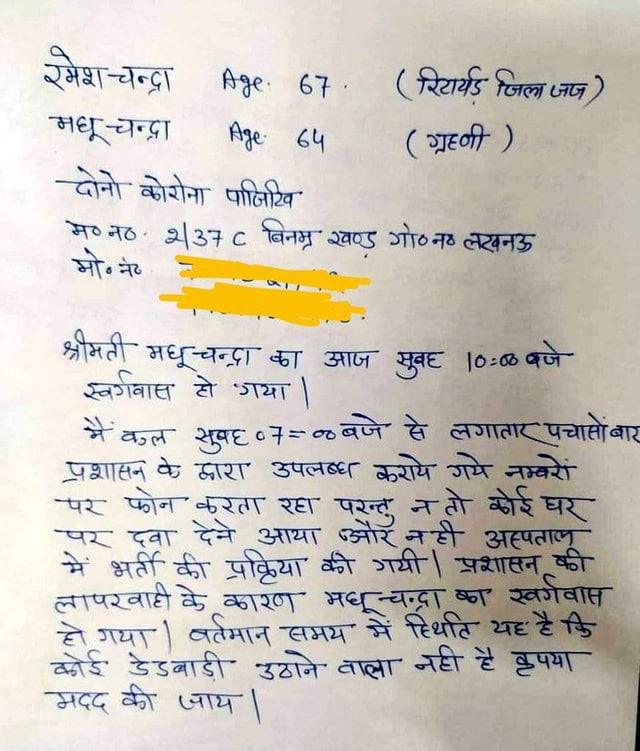 रमेश चन्द्रा Age. 67. (रिटायर्ड जिला जज)
मधू चन्द्रा Age. 64 (ग्रहणी)
दोनो कोरोना पाजिटिव
म० न० 2/37 C विनम्र खण्ड गो० न० लखनऊ
मो० नं०
श्रीमती मधू चन्द्रा का आज सुवह 10=00 बजे
स्वर्गवास हो गया।
मैं कल सुवह 07=00 बजे से लगातार पचासों बार
प्रशासन के द्वारा उपलब्ध कराये गये नम्बरों
पर फोन करता रहा परन्तु न तो कोई घर
पर दवा देने आया और न ही अस्पताल
में भर्ती की प्रक्रिया की गयी। प्रशासन की
लापरवाही के कारण मधू चन्द्रा का स्वर्गवास
हो गया। वर्तमान समय में स्थिति यह है कि
कोई डेडबाडी उठाने वाला नही है कृपया
मदद की जाय।